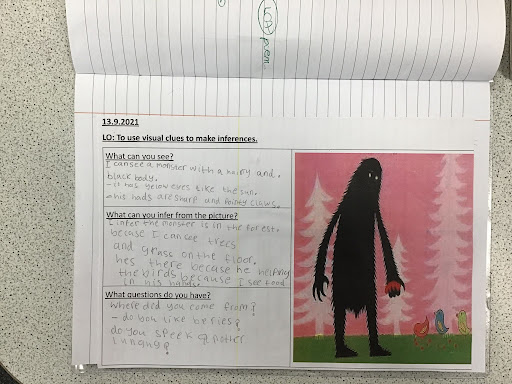 poem
13.9.2021
LO: To use visual clues to make inferences.
What can you see?
I cansee a monster with a hairy and.
black body.
- it has yelow eyes like the sun.
his hads are sharp and pointy claws.
What can you infer from the picture?
I infer the monster is in the forest.
becase I can see trees
and grass on the floor.
hes there becase he helping
the birds because I see food
in his hands
What questions do you have?
where did you come from?
- do you like beries?
do you speek a nother